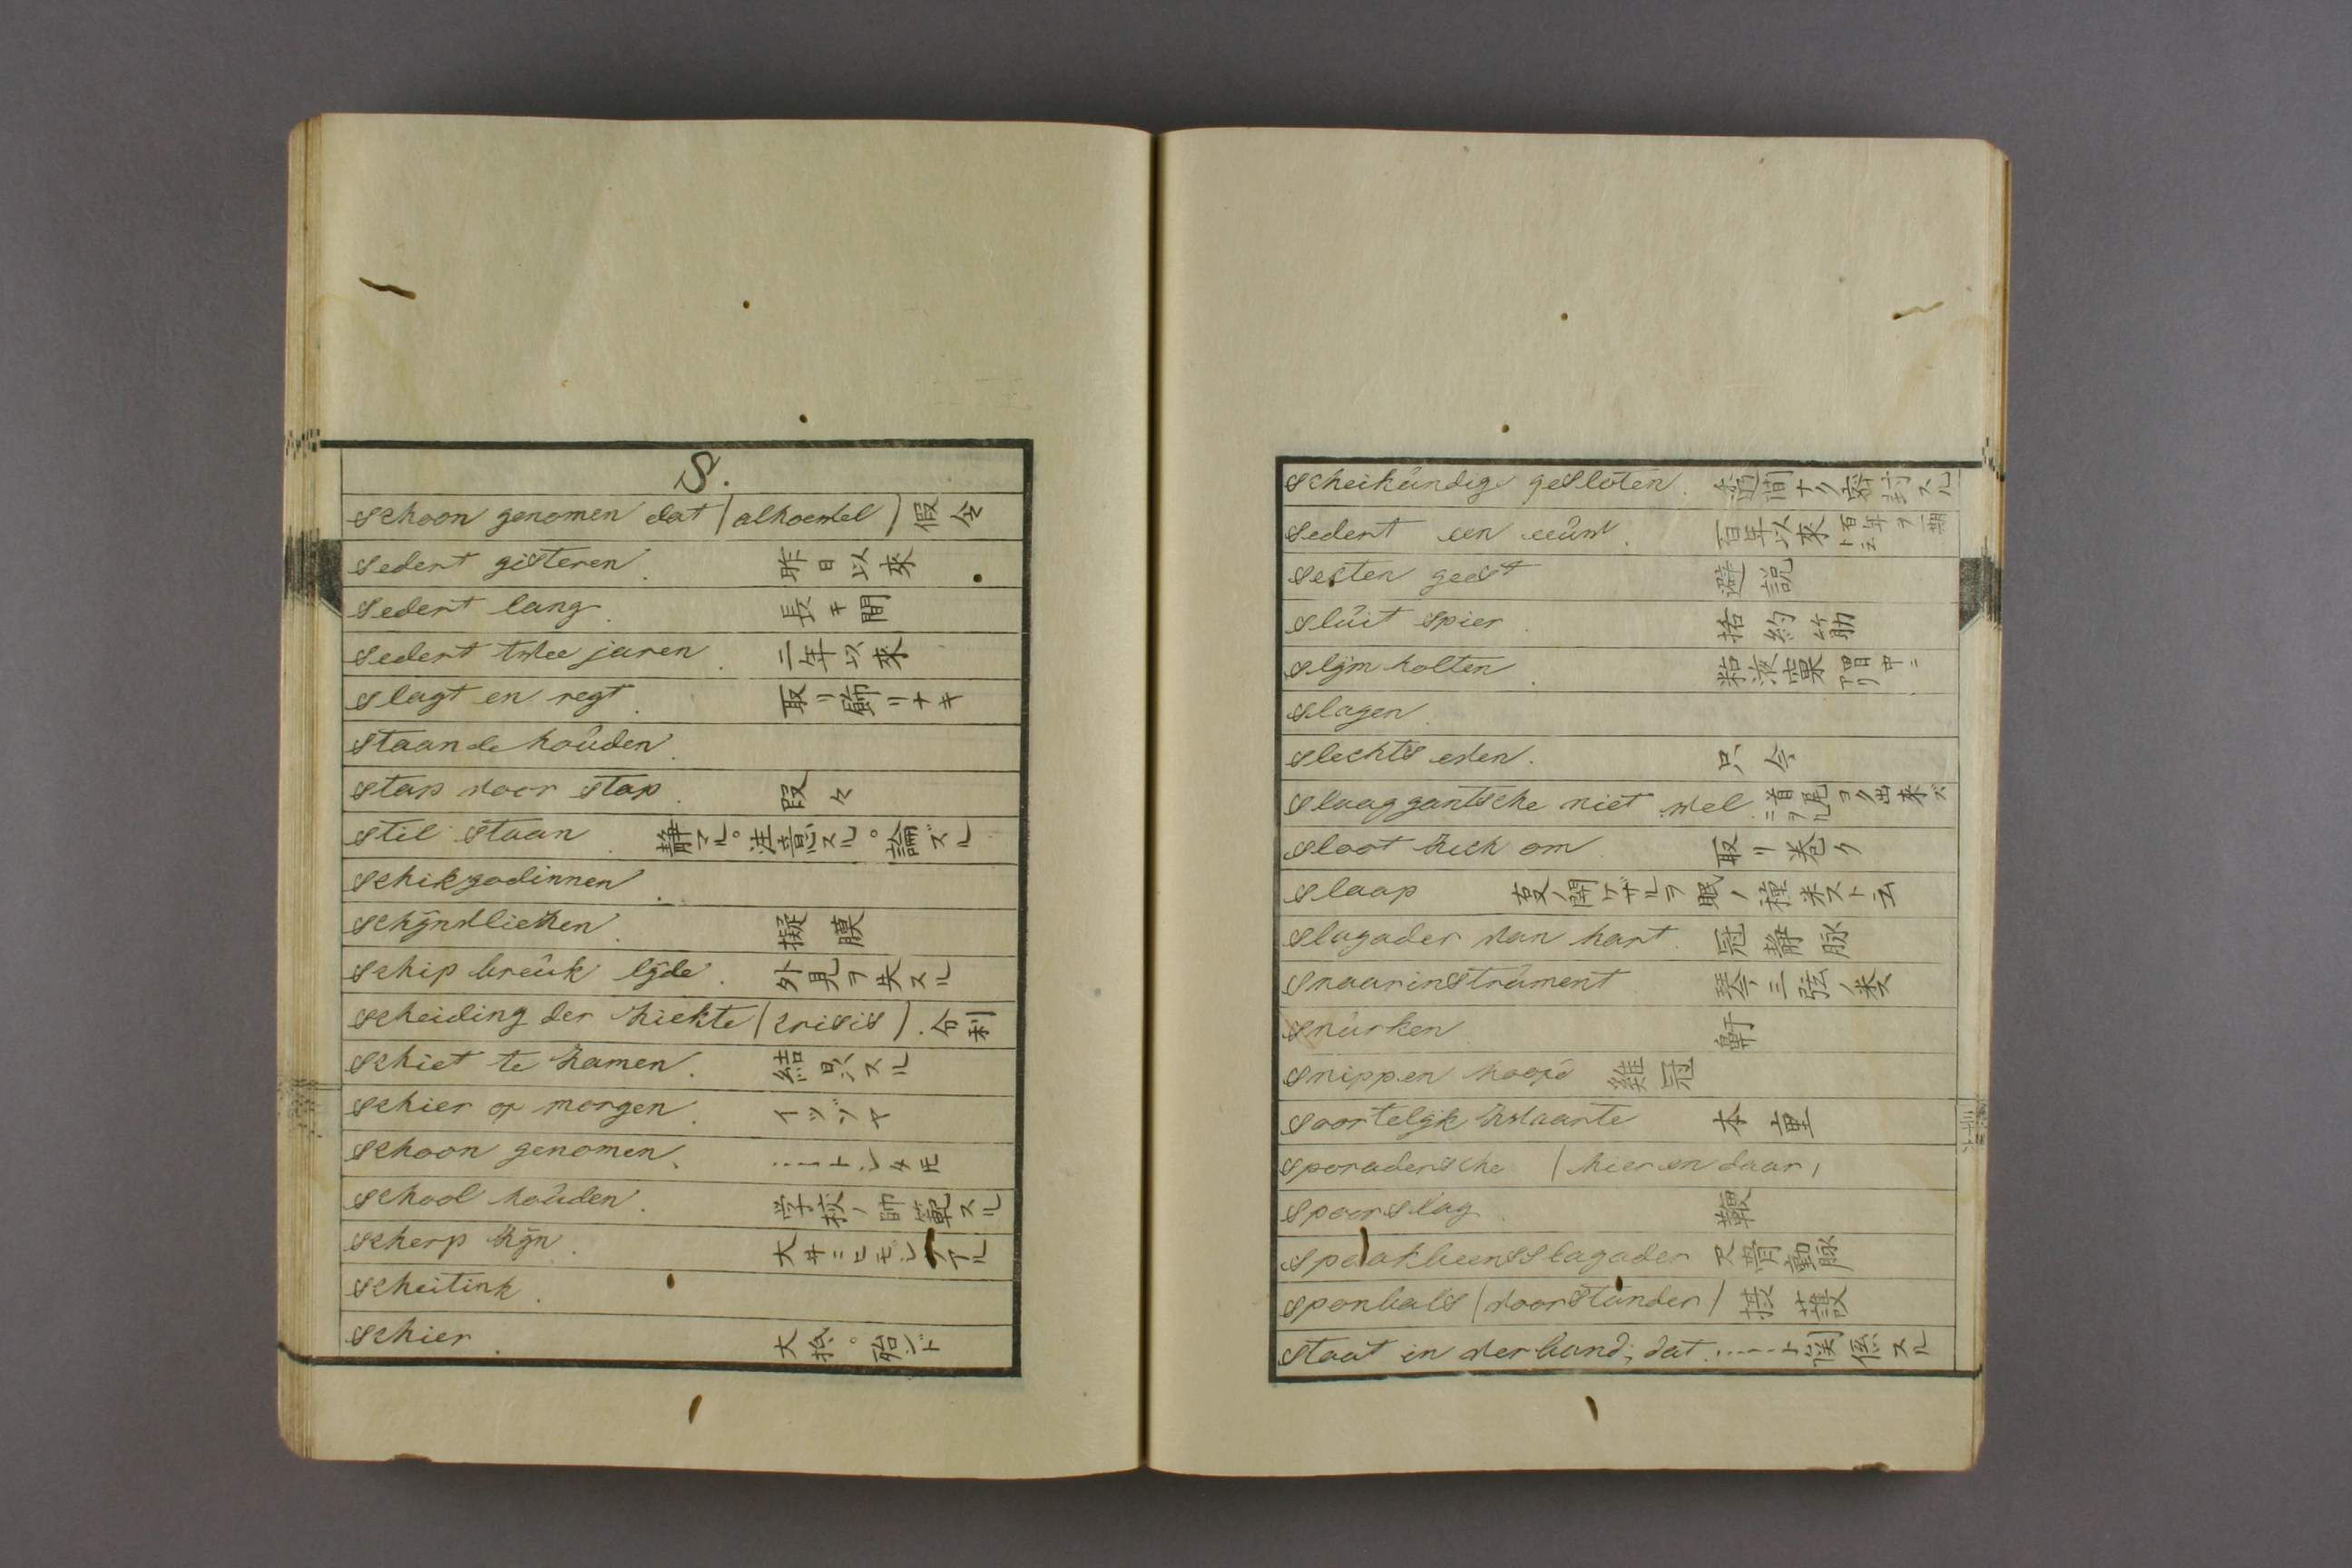 S.
Schoon genomen dat (alhoewel) 假令
Sedert gisteren. 昨日以來
Sedert lang. 長キ間
Sedert twee jaren. 二年以來
Slagt en regt. 取リ飾リナキ
Staande hoûden.
Stap voor stap. 段々
Stil staan. 静マル。注意スル。論ズル
Schikgodinnen.
Schÿnvliezen. 擬膜
Schip breûk lÿde. 外見ヲ失スル
Scheiding der ziekte (Crisis). 分利
Schiet te zamen. 結晶スル
Schier op morgen. イツゾヤ
Schoon genomen. ……トシタモ
School hoûden. 学校ノ師範スル
Scherp zÿn.
Scheitink.
Schier. 大抵。殆ンド
Scheikûndig gesloten. 透間ナク密封スル
Sedert een eeûw. 百年以來 百年ヲ一期ト云
Secten geest 避説
Slûit spier. 括約筋
Slÿm holten. 粘液窠 胃中ニアリ
Slagen.
Slechts even. 只今
Slaag gantsche niet wel. 首尾ヨク出来ズニヲル
Sloot zich om 取リ巻ク
Slaap
Slagader van hart. 冠静脉
Snaarinstrûment 琴三弦ノ類
Snûrken 鼾
Snippen hoofd 雞冠
Soortelÿk zwaarte 本重
Sporadersche (hier en daar)
Spoorslag. 鞭
Spaakbeensslagader 尺骨動脉
Sponbals (voorstander) 摂護
Staat in verband; dat. ……ト関係スル